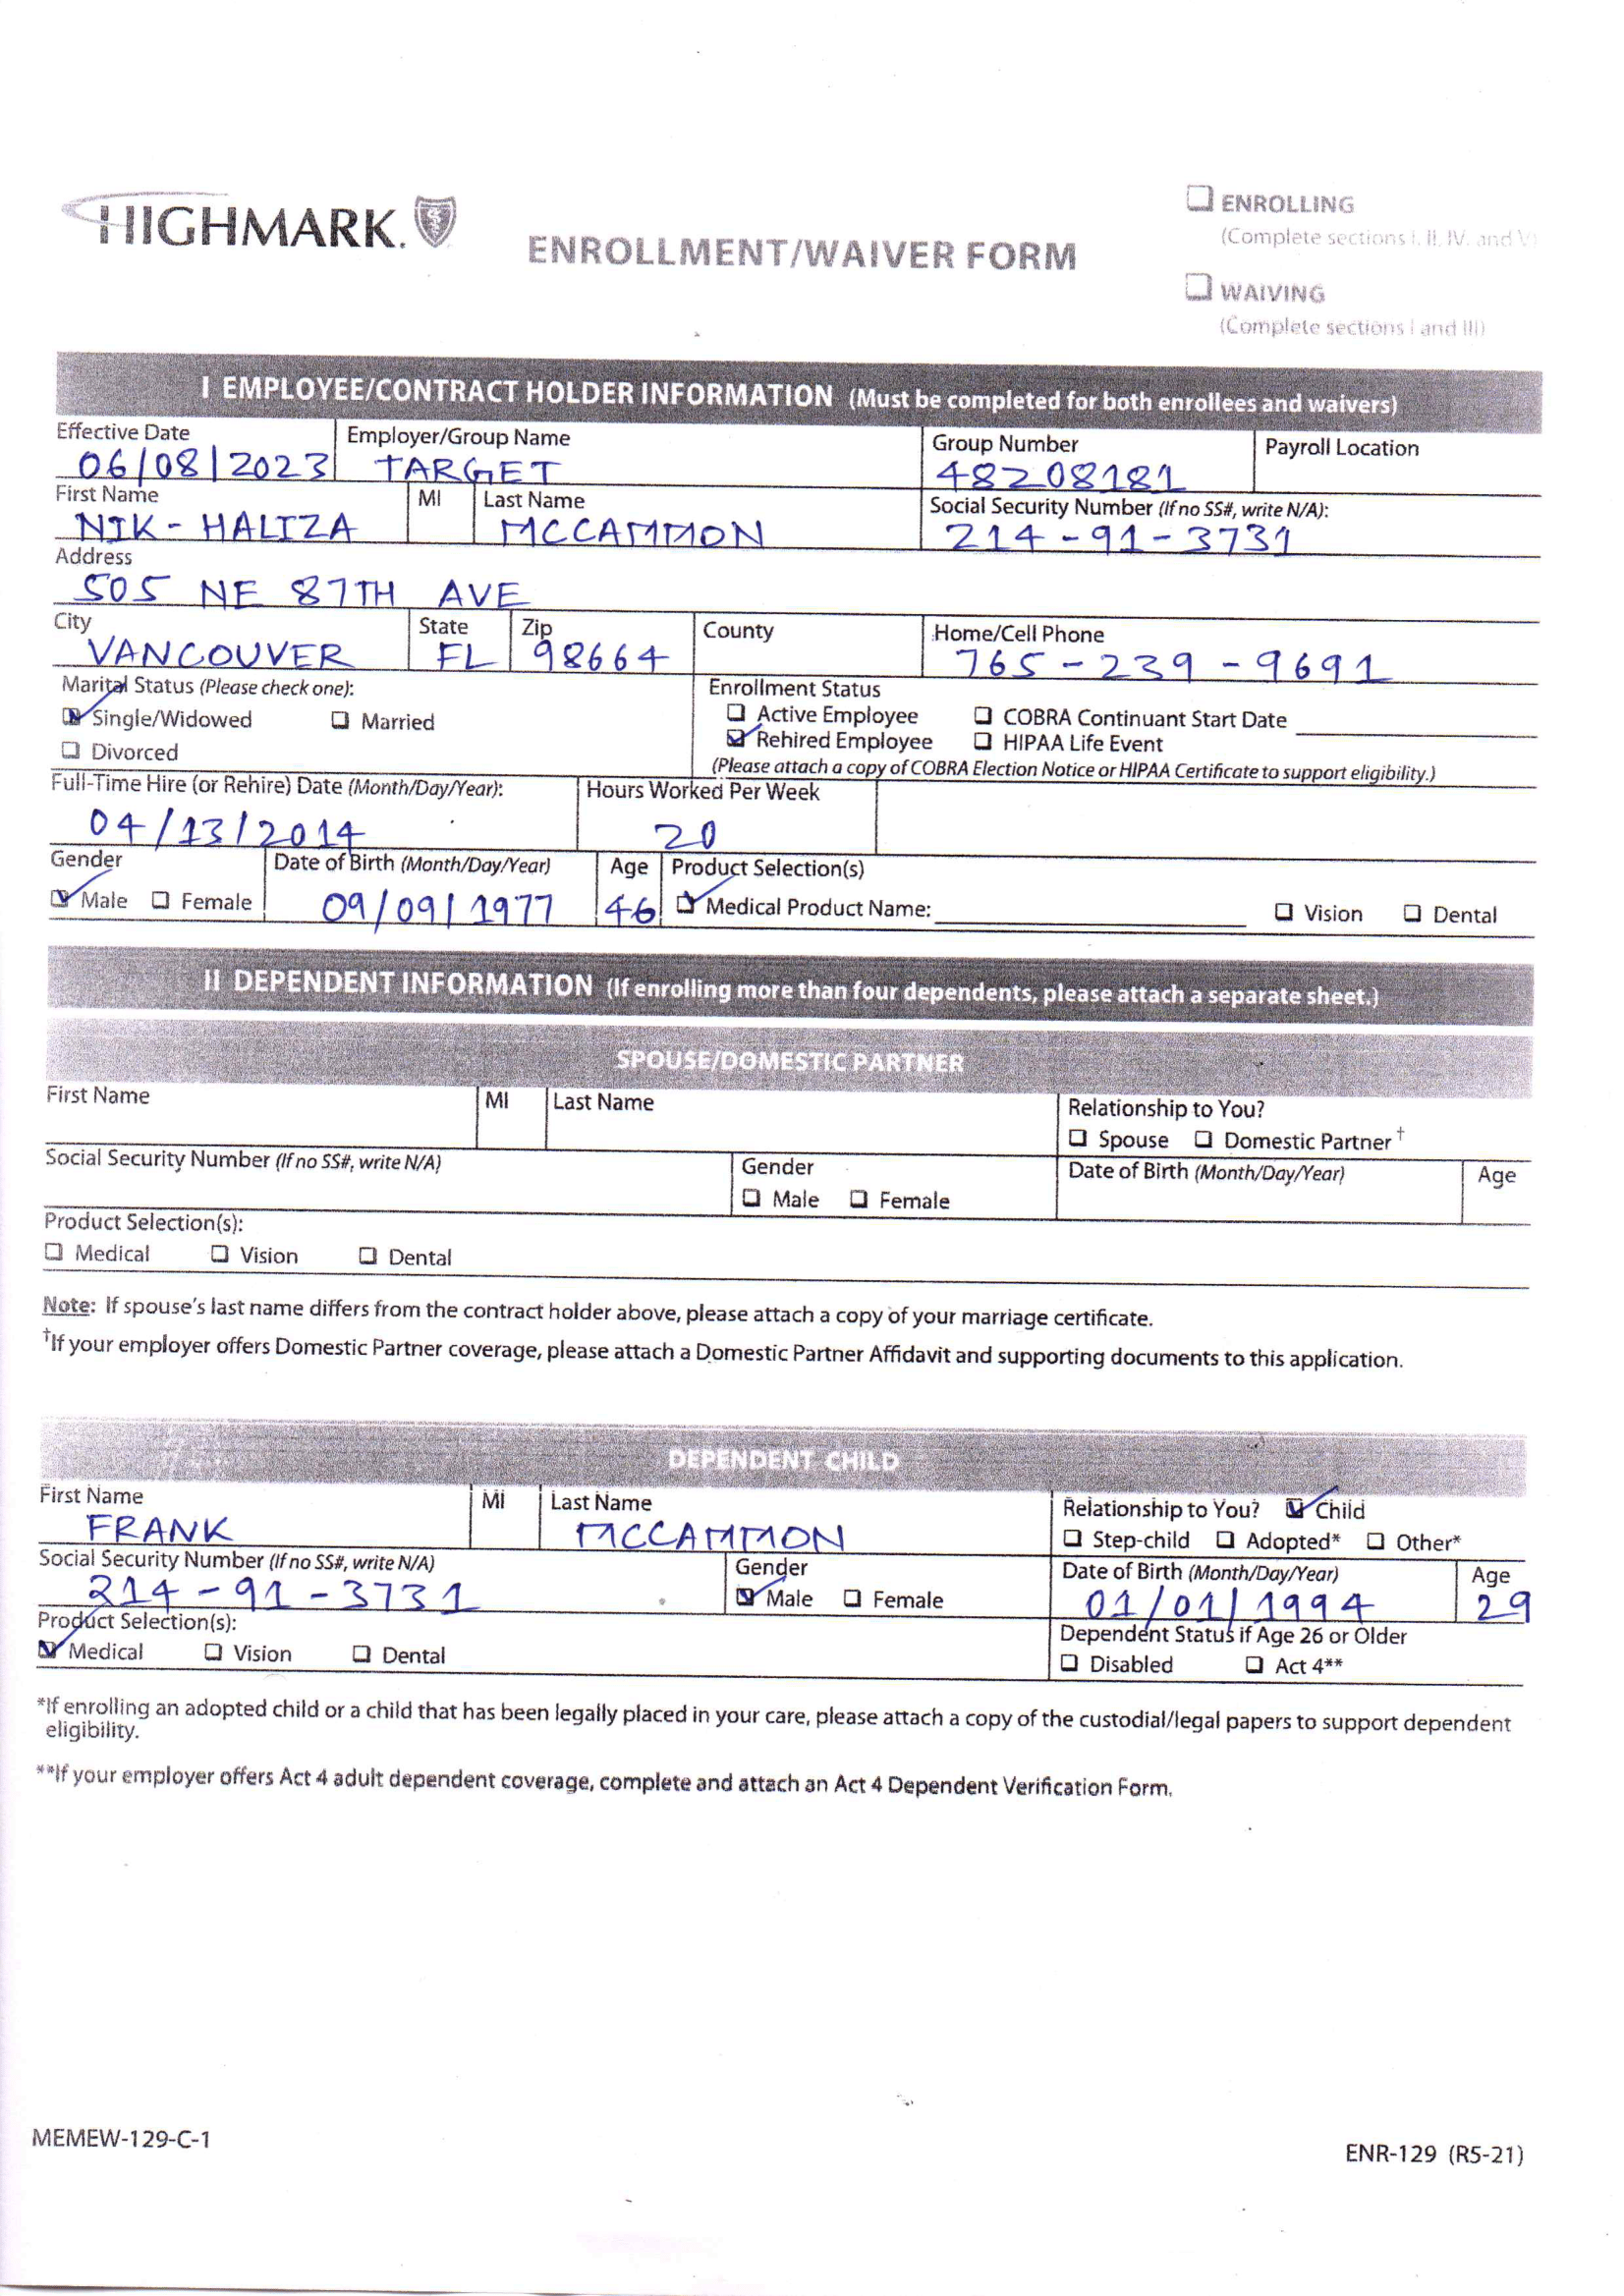 HIGHMARK.
ENROLLMENT/WAIVER FORM
ENROLLING
(Complete sections I, II, IV, and V)
WAIVING
(Complete sections I and III)
I EMPLOYEE/CONTRACT HOLDER INFORMATION (Must be completed for both enrollees and waivers)
Effective Date Employer/Group Name Group Number Payroll Location
06/08/2023 TARGET 48208181
First Name MI Last Name Social Security Number (If no SS#, write N/A):
NIK-HALIZA MCCAMMON 214-91-3731
Address
505 NE 87TH AVE
City State Zip County Home/Cell Phone
VANCOUVER FL 98664 765-239-9691
Marital Status (Please check one): Enrollment Status
Single/Widowed Married Active Employee COBRA Continuant Start Date
Divorced Rehired Employee HIPAA Life Event
(Please attach a copy of COBRA Election Notice or HIPAA Certificate to support eligibility.)
Full-Time Hire (or Rehire) Date (Month/Day/Year): Hours Worked Per Week
04/13/2014 20
Gender Date of Birth (Month/Day/Year) Age Product Selection(s)
Male Female 09/09/1977 46 Medical Product Name: Vision Dental
II DEPENDENT INFORMATION (If enrolling more than four dependents, please attach a separate sheet.)
SPOUSE/DOMESTIC PARTNER
First Name MI Last Name Relationship to You?
Spouse Domestic Partner †
Social Security Number (If no SS#, write N/A) Gender Date of Birth (Month/Day/Year) Age
Male Female
Product Selection(s):
Medical Vision Dental
Note: If spouse's last name differs from the contract holder above, please attach a copy of your marriage certificate.
†If your employer offers Domestic Partner coverage, please attach a Domestic Partner Affidavit and supporting documents to this application.
DEPENDENT CHILD
First Name MI Last Name Relationship to You? Child
FRANK MCCAMMON Step-child Adopted* Other*
Social Security Number (If no SS#, write N/A) Gender Date of Birth (Month/Day/Year) Age
214-91-3731 Male Female 01/01/1994 29
Product Selection(s): Dependent Status if Age 26 or Older
Medical Vision Dental Disabled Act 4**
*If enrolling an adopted child or a child that has been legally placed in your care, please attach a copy of the custodial/legal papers to support dependent
eligibility.
**If your employer offers Act 4 adult dependent coverage, complete and attach an Act 4 Dependent Verification Form.
MEMEW-129-C-1
ENR-129 (R5-21)